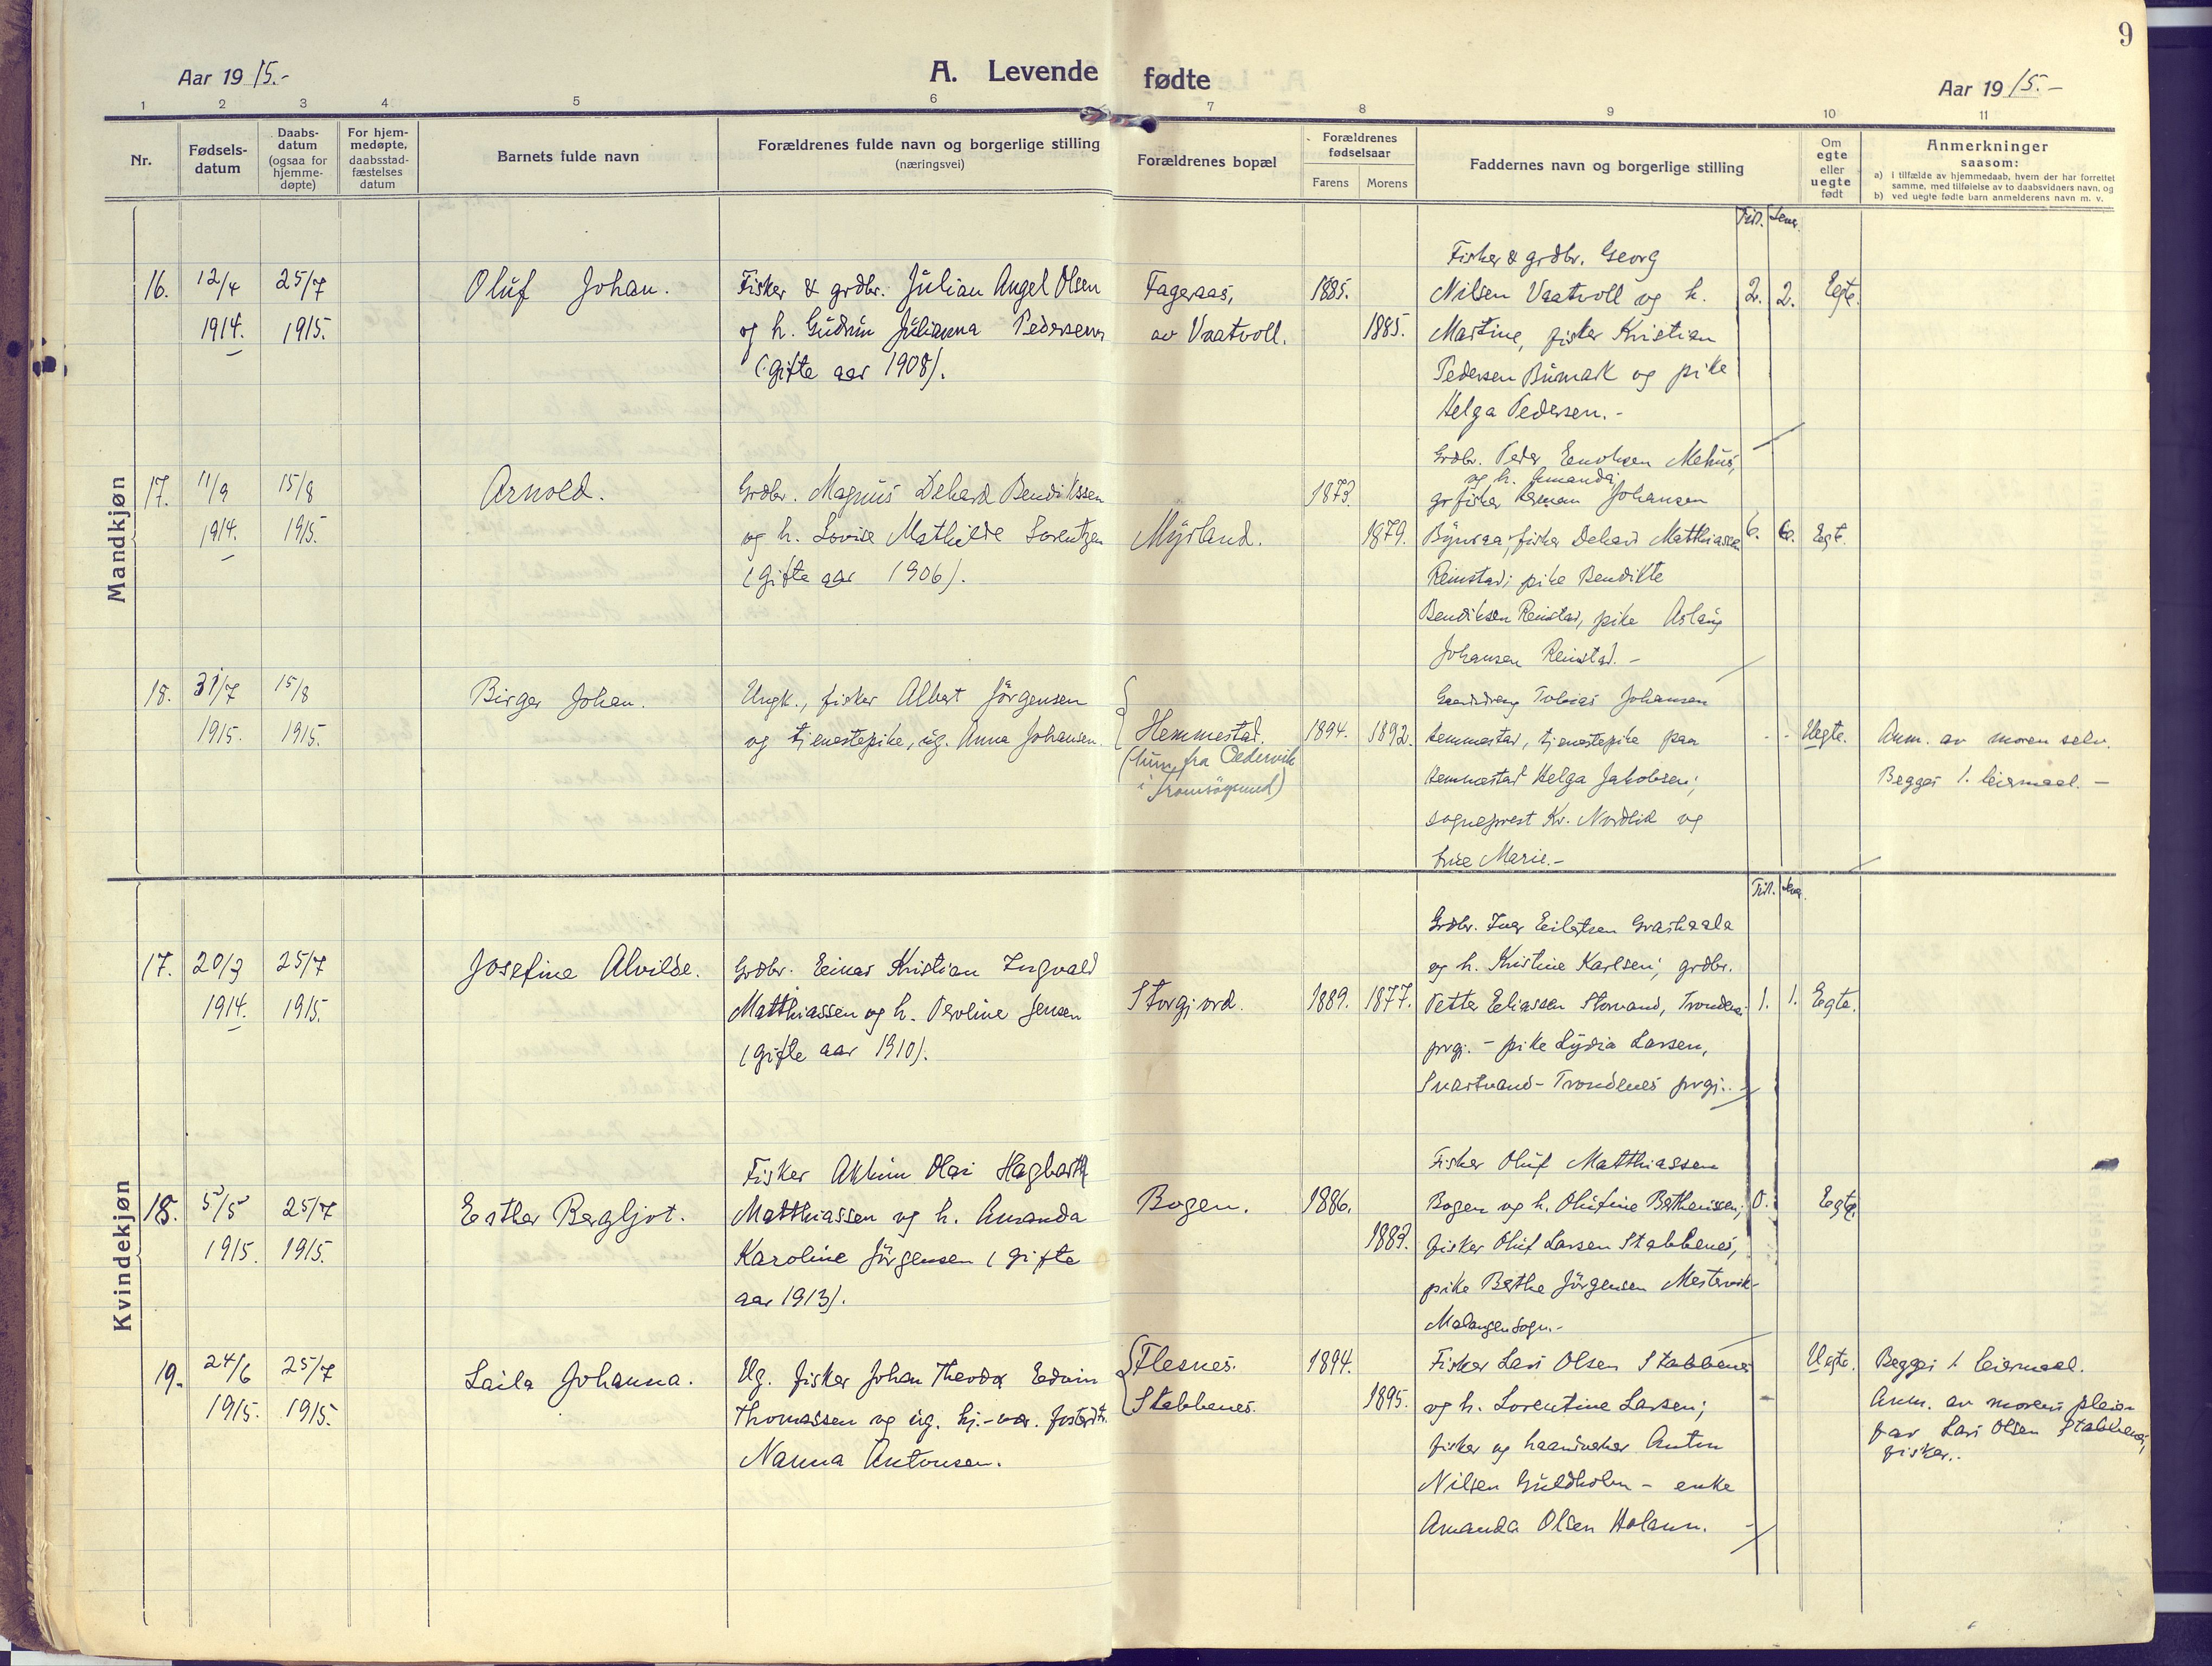 9
Aar 19 15.-
A. Levende fødte
Aar 19 15.-
1 2 3 4 5 6 7 8 9 10 11
Nr.
Fødsels-
datum
Daabs-
datum
(ogsaa for
hjemme-
døpte)
For hjem-
medøpte,
daabsstad-
fæstelses
datum
Barnets fulde navn
Forældrenes fulde navn og borgerlige stilling
(næringsvei)
Forældrenes bopæl
Forældrenes
fødselsaar
Farens Morens
Faddernes navn og borgerlige stilling
Om
egte
eller
uegte
født
Anmerkninger
saasom:
a) I tilfælde av hjemmedaab, hvem der har forrettet
samme, med tilføielse av to daabsvidners navn, og
b) ved uegte fødte barn anmelderens navn m. v.
Mandkjøn
16.
12/4
1914.
25/7
1915.
Oluf Johan.
Fisker & grdbr. Julian Angel Olsen
og h. Gudrun Julianna Pedersen
(gifte aar 1908).
Fageraas,
av Vaatvoll.
1885.
1885.
Fisker & grdbr. Georg
Nilsen Vaatvoll og h.
Martine, fisker Kristian
Pedersen Bumark og pike
Helga Pedersen.-
2. 2.
Egte.
17.
11/9
1914.
15/8
1915.
Arnold.
Grdbr. Magnus Dehard Bendikssen
og h. Lovise Mathilde Lorentzen
(gifte aar 1906).
Myrland.
1873.
1879.
Grdbr. Peder Enoksen Mehus,
og h. Amanda;
fisker Herman Johansen
Bynsaa; fisker Dehard Matthiassen
Reinstad; pike Bendikte
Bendiksen Reinstad, pike Aslaug
Johansen Reinstad.-
6. 6.
Egt.
18.
31/7
1915.
15/8
1915.
Birger Johan.
Ungk., fisker Albert Jörgensen
og tjenestepike, ug. Anna Johansen.
Hemmestad.
(hun fra Oldervik
i Tromsöysund)
1894. 1892.
Gaardsdreng Tobias Johansen
Hemmestad, tjenestepike paa
Hemmestad Helga Jakobsen;
sogneprest Kr. Nordlid og
frue Marie.-
Uegte.
Anm. av moren selv.
Begges 1. leiermaal.-
Kvindekjøn
17.
20/3
1914.
25/7
1915.
Josefine Alvilde.
Grdbr. Einar Kristian Ingvald
Matthiassen og h. Peroline Jensen
(gifte aar 1910).
Storgjord.
1889. 1877.
Grdbr. Ivar Eilertsen Grashaala
og h. Kristine Karlsen; grdbr.
Petter Eliassen Storvand, Trondenes
prgj. - pike Lydia Larsen,
Svartvand-Trondenes prgj.-
1. 1.
Egte.
18.
5/5
1915.
25/7
1915.
Esther Bergljot.
Fisker Akkim Olai Hagbarth
Matthiassen og h. Amanda
Karoline Jörgensen (gifte
aar 1913).
Bogen.
1886.
1883.
Fisker Oluf Matthiassen
Bogen og h. Olufine Bertheussen;
fisker Oluf Larsen Stabbenes,
pike Berthe Jörgensen Mestervik-
Malangen sogn.-
0.
Egte.
19.
24/6
1915.
25/7
1915.
Laila Johanna.
Ug. fisker Johan Theodor Edvin
Thomassen og ug. hj.-vær. fosterdtr.
Nanna Antonsen.
Flesnes.
Stabbenes.
1894.
1895.
Fisker Lars Olsen Stabbenes
og h. Lorentine Larsen;
fisker og haandverker Anton
Nilsen Guldholm - enke
Amanda Olsen Holaun.
Uegte.
Begges 1. leiermaal.
Anm. av morens pleie-
far Lars Olsen Stabbenes,
fisker.